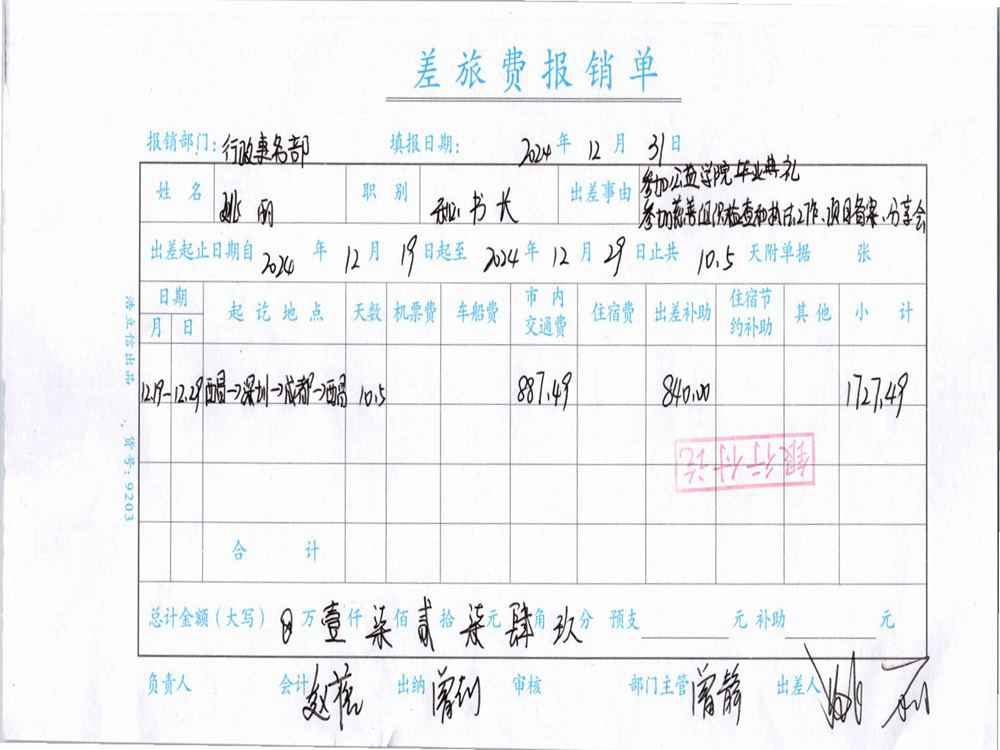 差旅费报销单
报销部门：行政事务部 填报日期： 2024 年 12 月 31 日
姓名 姚丽 职别 秘书长 出差事由 参加公益学院毕业典礼
参加慈善组织检查和执法工作、项目备案、分享会
出差起止日期自 2024 年 12 月 19 日起至 2024 年 12 月 29 日止共 10.5 天附单据 张
日期 起讫地点 天数 机票费 车船费 市内交通费 住宿费 出差补助 住宿节约补助 其他 小计
月 日
12.19-12.29 西昌→深圳→成都→西昌 10.5 887.49 840.00 1727.49
银行付讫
合计
总计金额（大写） 万 壹 仟 柒 佰 贰 拾 柒 元 肆 角 玖 分 预支 元 补助 元
负责人 会计 赵 出纳 曾 审核 部门主管 曾静 出差人 姚丽
货号：9203